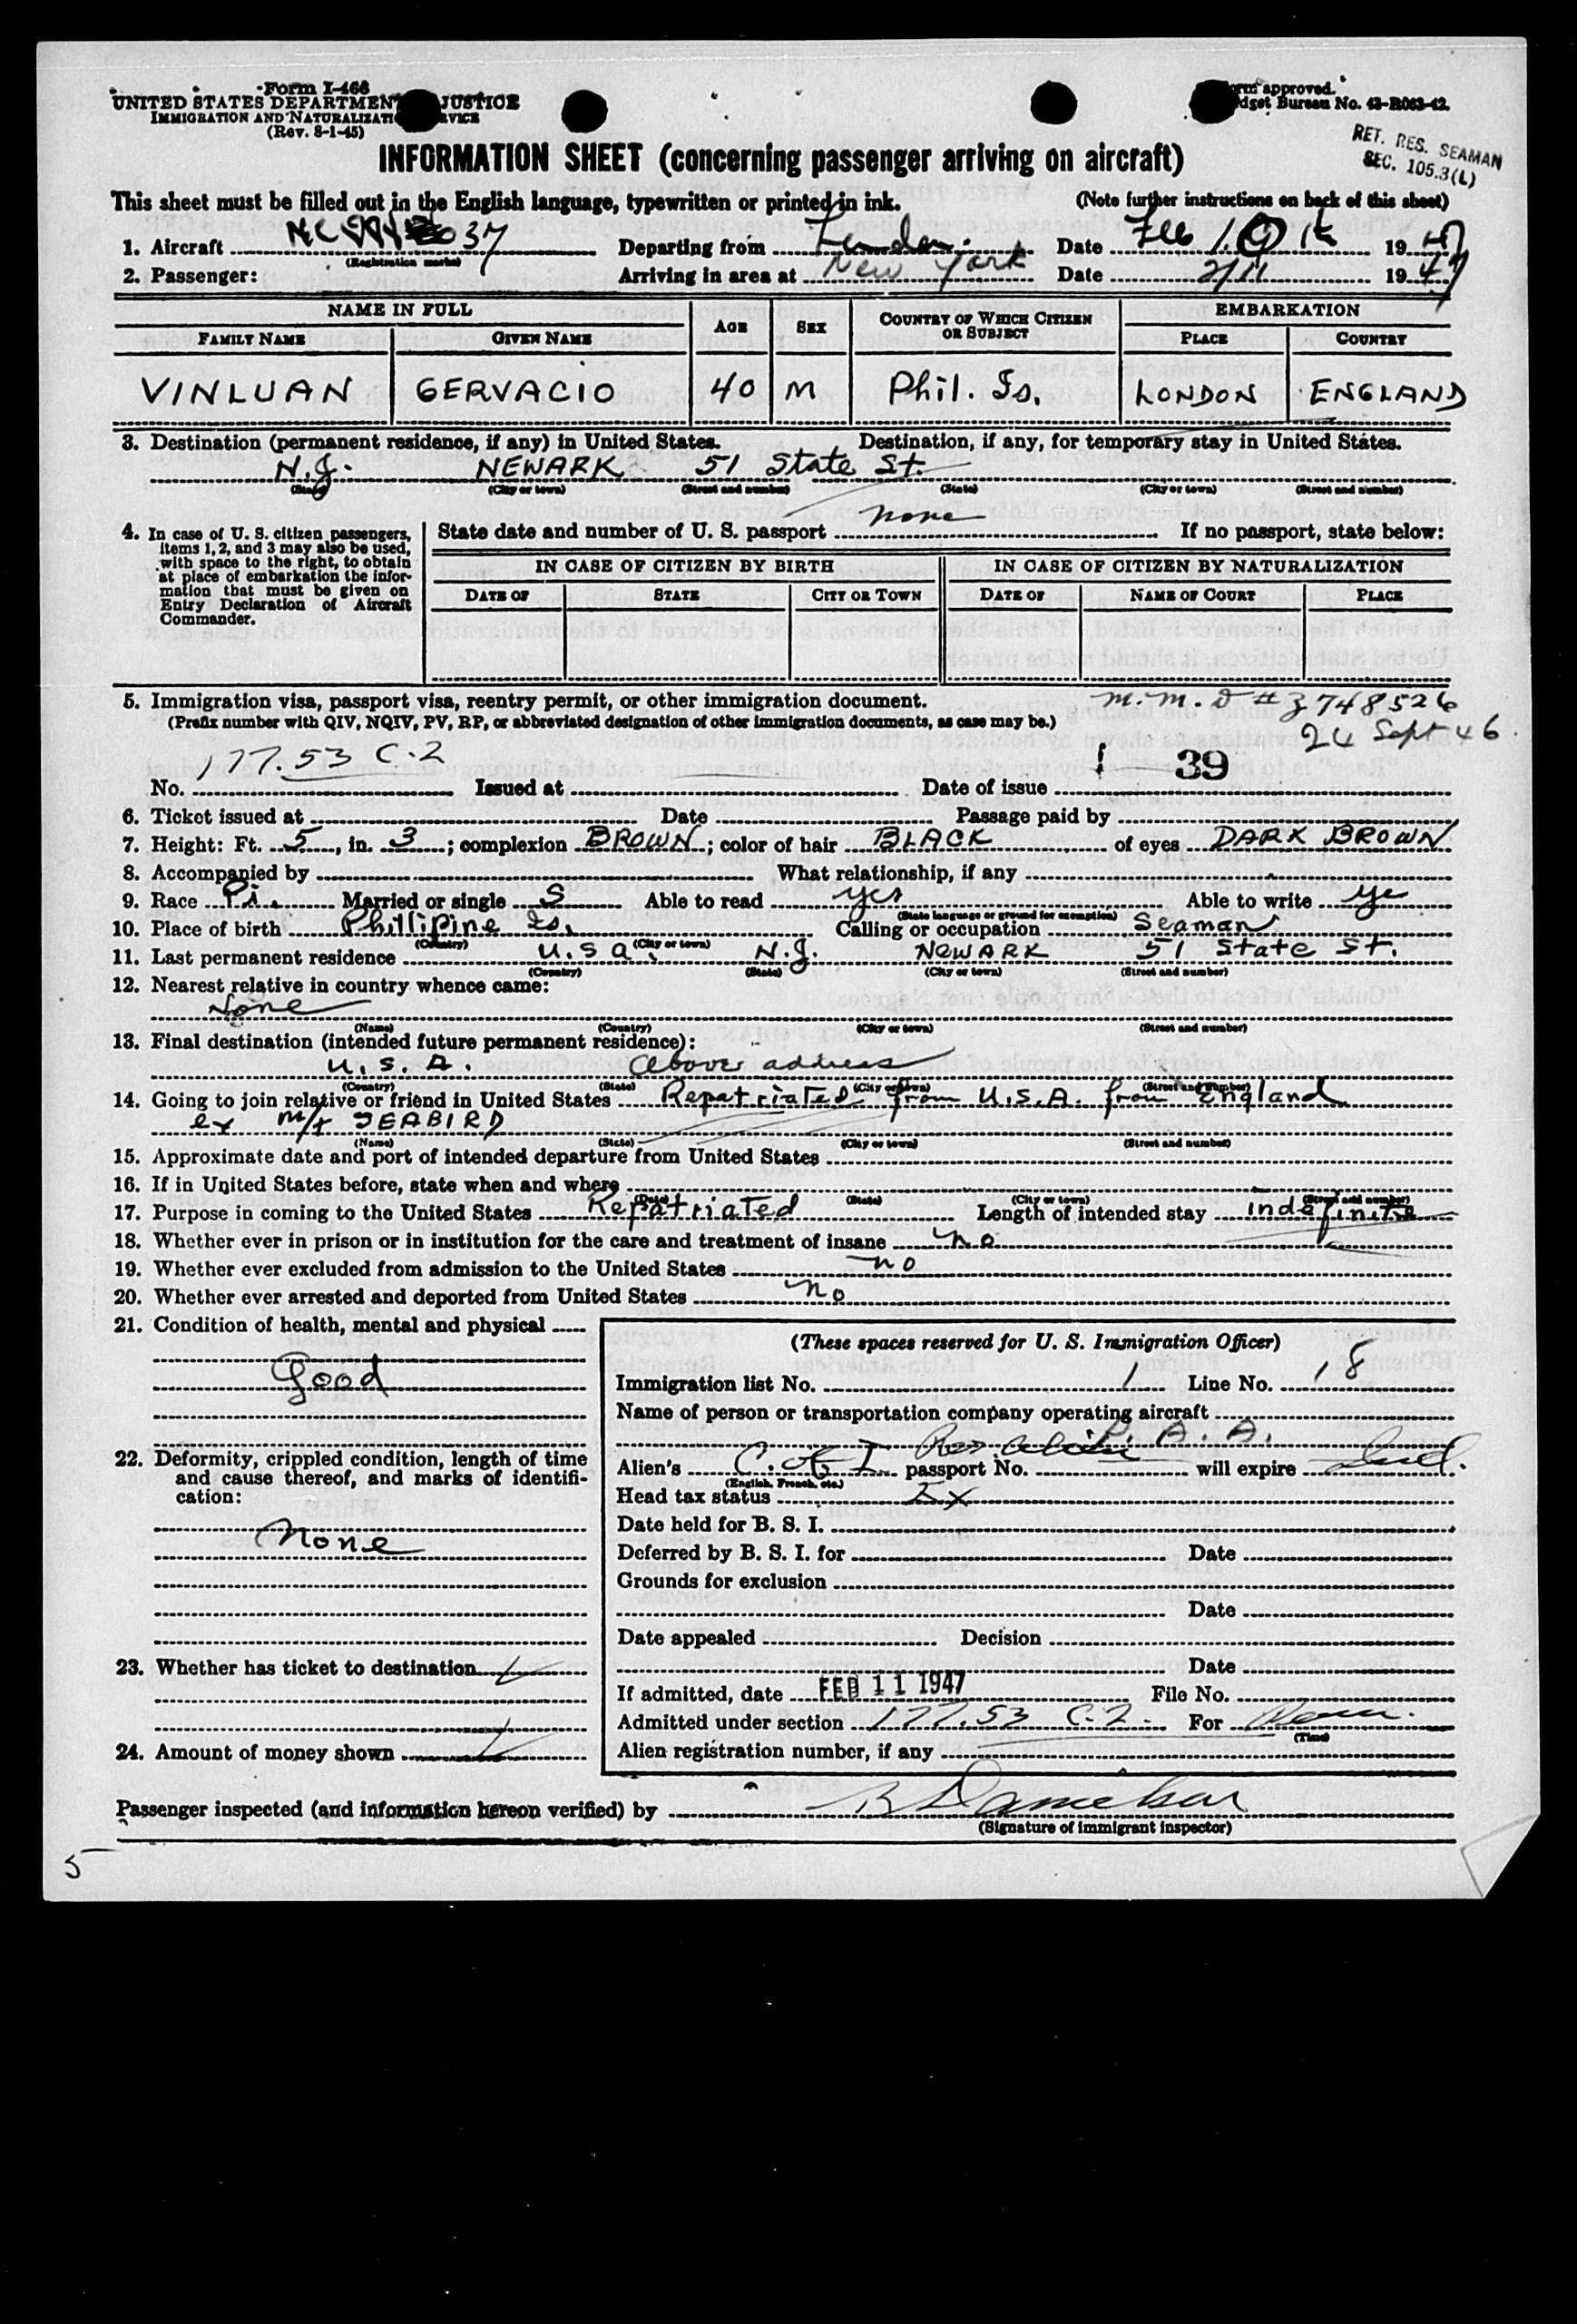 Form I-466
UNITED STATES DEPARTMENT JUSTICE
IMMIGRATION AND NATURALIZATI RVICE
(Rev. 8-1-45)
orm approved.
dget Bureau No. 43-R063-42.
RET. RES. SEAMAN
SEC. 105.3(L)
INFORMATION SHEET (concerning passenger arriving on aircraft)
This sheet must be filled out in the English language, typewritten or printed in ink. (Note further instructions on back of this sheet)
1. Aircraft Departing from London Date Feb 10th 1947
(Registration marks)
2. Passenger: Arriving in area at New York Date 2/11 1947
NAME IN FULL AGE SEX COUNTRY OF WHICH CITIZEN OR SUBJECT EMBARKATION
FAMILY NAME GIVEN NAME PLACE COUNTRY
VINLUAN GERVACIO 40 M Phil. Is. LONDON ENGLAND
3. Destination (permanent residence, if any) in United States. Destination, if any, for temporary stay in United States.
N.J. NEWARK 51 State St.
(State) (City or town) (Street and number) (State) (City or town) (Street and number)
4. In case of U. S. citizen passengers,
items 1, 2, and 3 may also be used,
with space to the right, to obtain
at place of embarkation the infor-
mation that must be given on
Entry Declaration of Aircraft
Commander.
State date and number of U. S. passport none If no passport, state below:
IN CASE OF CITIZEN BY BIRTH IN CASE OF CITIZEN BY NATURALIZATION
DATE OF STATE CITY OR TOWN DATE OF NAME OF COURT PLACE
5. Immigration visa, passport visa, reentry permit, or other immigration document. M.M.D # Z 748526
(Prefix number with QIV, NQIV, PV, RP, or abbreviated designation of other immigration documents, as case may be.)
24 Sept 46
177.53 C-2 39
No. Issued at Date of issue
6. Ticket issued at Date Passage paid by
7. Height: Ft. 5, in. 3; complexion BROWN; color of hair BLACK of eyes DARK BROWN
8. Accompanied by What relationship, if any
9. Race P.I. Married or single S Able to read yes Able to write ye
(State language or ground for exemption)
10. Place of birth Phillipine Is. Calling or occupation Seaman
(Country) (City or town)
11. Last permanent residence U.S.A. N.J. NEWARK 51 State St.
(Country) (State) (City or town) (Street and number)
12. Nearest relative in country whence came:
None
(Name) (Country) (City or town) (Street and number)
13. Final destination (intended future permanent residence):
U.S.A. above address
(Country) (State) (City or town) (Street and number)
14. Going to join relative or friend in United States Repatriated from U.S.A. from England
ex M/T SEABIRD
(Name) (State) (City or town) (Street and number)
15. Approximate date and port of intended departure from United States
16. If in United States before, state when and where
(Date) (State) (City or town) (Street and number)
17. Purpose in coming to the United States Repatriated Length of intended stay indefinite
18. Whether ever in prison or in institution for the care and treatment of insane no
19. Whether ever excluded from admission to the United States no
20. Whether ever arrested and deported from United States no
21. Condition of health, mental and physical
Good
22. Deformity, crippled condition, length of time
and cause thereof, and marks of identifi-
cation:
None
23. Whether has ticket to destination
24. Amount of money shown
(These spaces reserved for U. S. Immigration Officer)
Immigration list No. 1 Line No. 18
Name of person or transportation company operating aircraft
P.A.A.
Alien's C. of I. passport No. will expire
(English, French, etc.)
Head tax status Ex
Date held for B. S. I.
Deferred by B. S. I. for Date
Grounds for exclusion
Date
Date appealed Decision
Date
If admitted, date FEB 11 1947 File No.
Admitted under section 177.53 C-2 For
(Time)
Alien registration number, if any
Passenger inspected (and information hereon verified) by
(Signature of immigrant inspector)
5